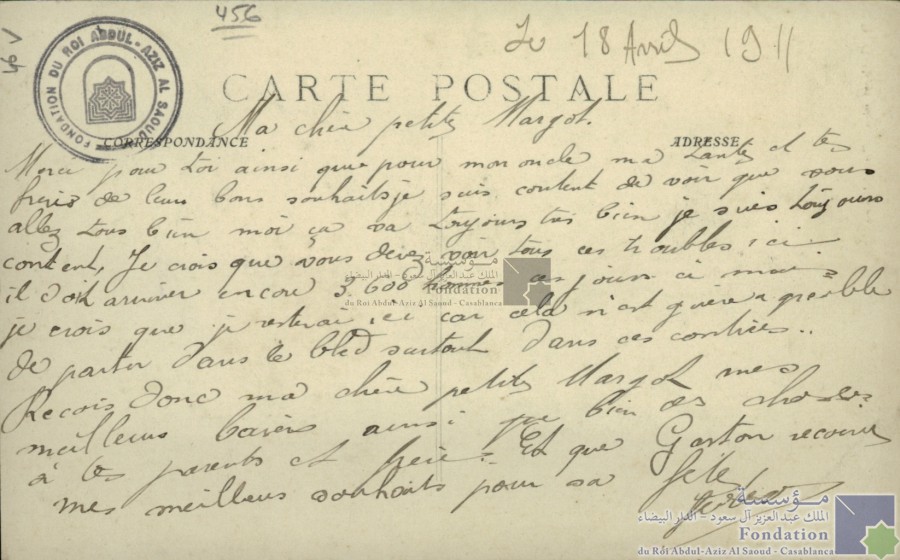 456
46 V
Le 18 Avril 1911
FONDATION DU ROI ABDUL-AZIZ AL SAOUD
CARTE POSTALE
CORRESPONDANCE
ADRESSE
Ma chère petite Margot.
Merci pour toi ainsi que pour mon oncle ma tante et tes
frères de leurs bons souhaits je suis content de voir que vous
allez tous bien moi ça va toujours très bien je suis toujours
content, Je crois que vous devez voir tous ces troubles ici
il doit arriver encore 3,600 hommes ces jours ci mai
je crois que je resterai ici car cela n'est guère agréable
de partir dans le bled surtout dans ces contrées..
Reçois donc ma chère petite Margot mes
meilleurs baisers ainsi que bien des choses
à tes parents et frère. Et que Gaston reçoive
mes meilleurs souhaits pour sa fête
مؤسسة
الملك عبد العزيز آل سعود - الدار البيضاء
Fondation
du Roi Abdul-Aziz Al Saoud - Casablanca
مؤسسة
الملك عبد العزيز آل سعود - الدار البيضاء
Fondation
du Roi Abdul-Aziz Al Saoud - Casablanca